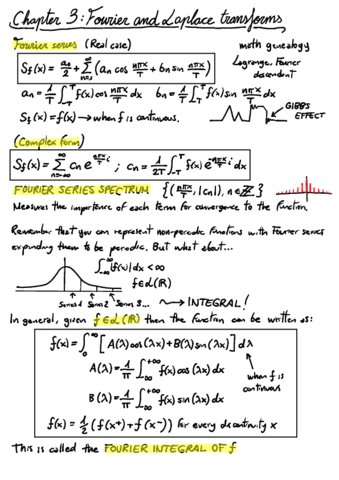 Chapter 3: Fourier and Laplace transforms
Fourier series (Real case)
math genealogy
Lagrange, Fourier
descendent
S_f(x) = a₀/2 + Σ_{n=1}^{∞} (a_n cos nπx/T + b_n sin nπx/T)
a_n = 1/T ∫_{-T}^{T} f(x) cos nπx/T dx b_n = 1/T ∫_{-T}^{T} f(x) sin nπx/T dx
S_f(x) = f(x) → when f is continuous.
GIBBS
EFFECT
(Complex form)
S_f(x) = Σ_{n=-∞}^{∞} c_n e^{nπx/T i} ; c_n = 1/2T ∫_{-T}^{T} f(x) e^{-nπx/T i} dx
FOURIER SERIES SPECTRUM {(nπx/T, |c_n|), n∈ℤ}
Measures the importance of each term for convergence to the function.
Remember that you can represent non-periodic functions with Fourier series
expanding them to be periodic. But what about...
∫_{-∞}^{∞} |f(x)| dx < ∞
f∈L(ℝ)
Series 1 Series 2 Series 3... → INTEGRAL!
In general, given f∈L(ℝ) then the function can be written as:
f(x) = ∫_{0}^{∞} [A(λ)cos(λx) + B(λ)sin(λx)] dλ
A(λ) = 1/π ∫_{-∞}^{+∞} f(x) cos(λx) dx
when f is
continuous
B(λ) = 1/π ∫_{-∞}^{+∞} f(x) sin(λx) dx
f(x) = 1/2 (f(x⁺) + f(x⁻)) for every discontinuity x
This is called the FOURIER INTEGRAL OF f